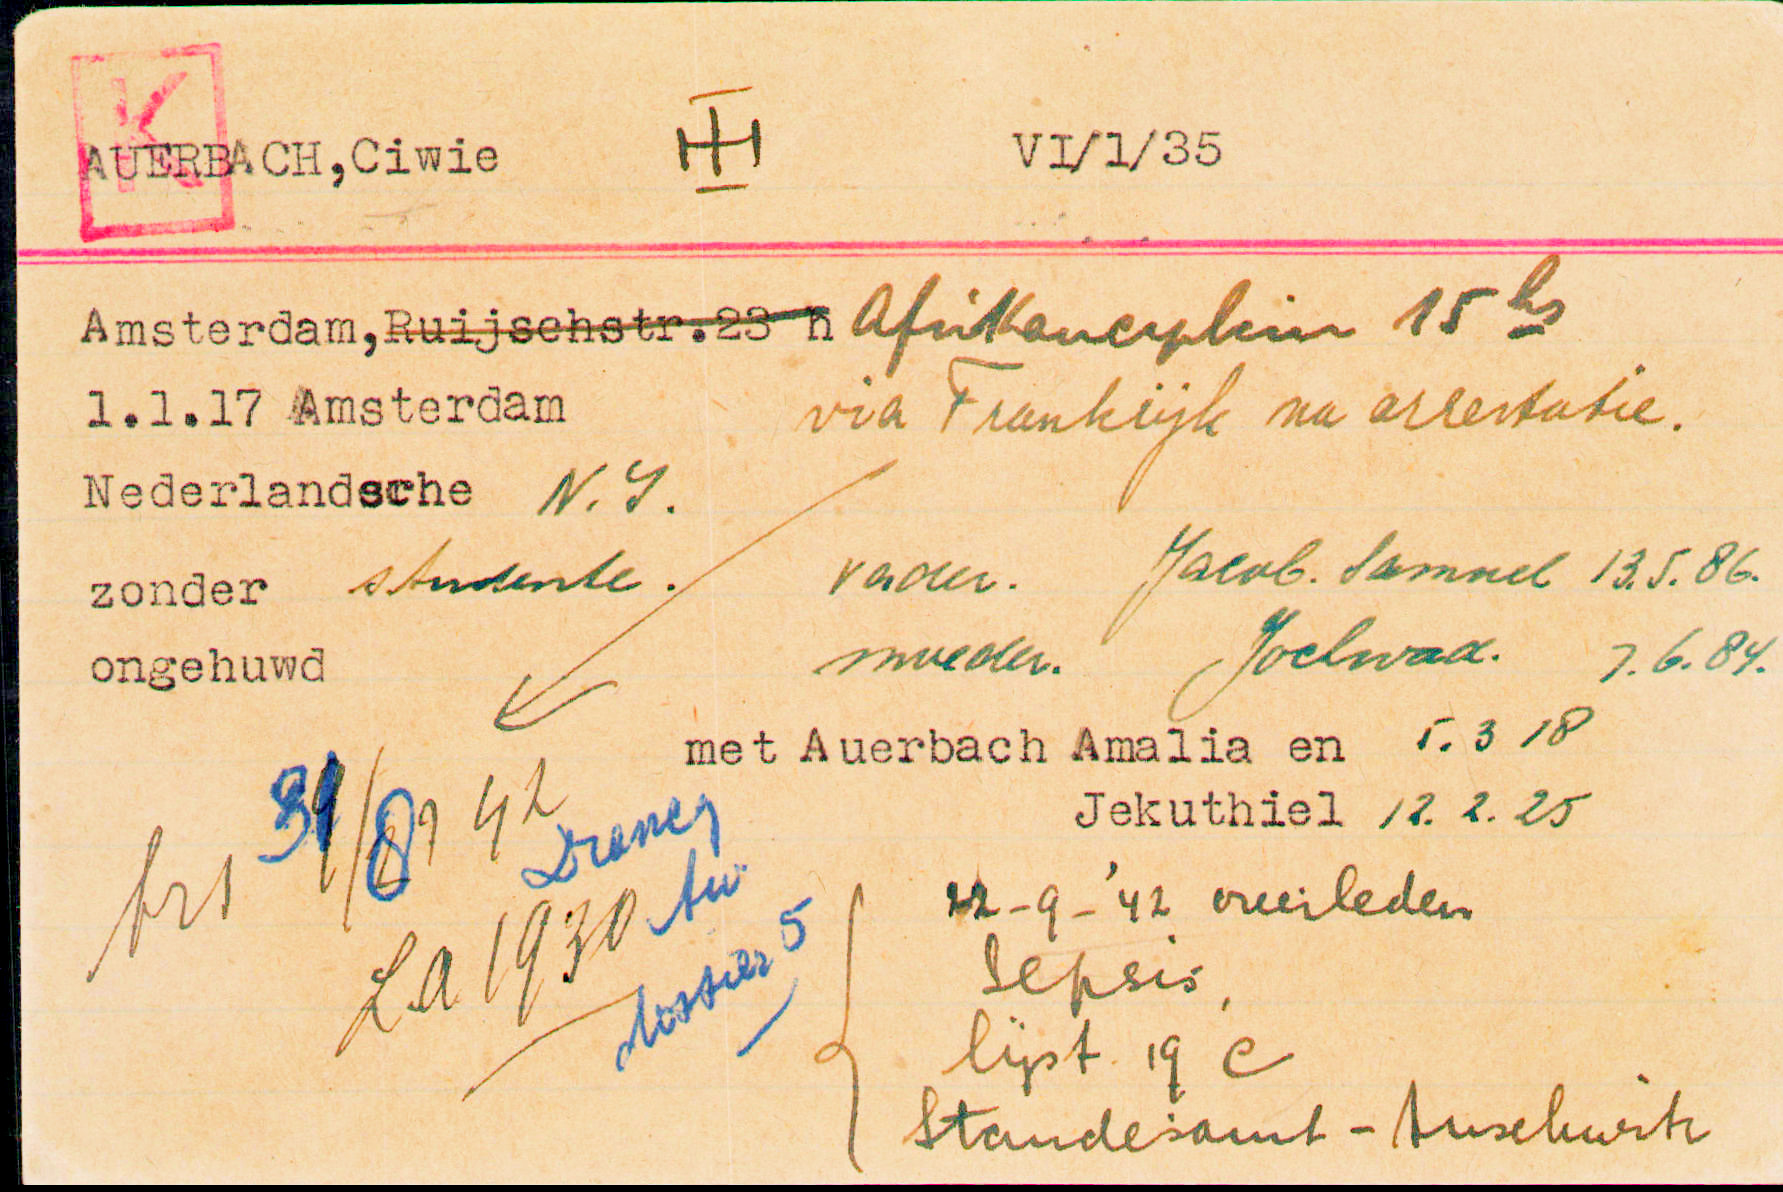 K
AUERBACH,Ciwie VI/1/35
Amsterdam,Ruijschstr.23 h Afrikanerplein 15 hs
1.1.17 Amsterdam via Frankrijk na arrestatie.
Nederlandsche N.I.
zonder studente. vader. Jacob. Samuel 13.5.86.
ongehuwd moeder. 7.6.84.
met Auerbach Amalia en 5.3 18
Jekuthiel 12.2.25
31/8 42
Drancy
La 1930 Au
dossier 5
22-9-'42 overleden
Sepsis,
lijst 19 C
Standesamt - Auschwitz